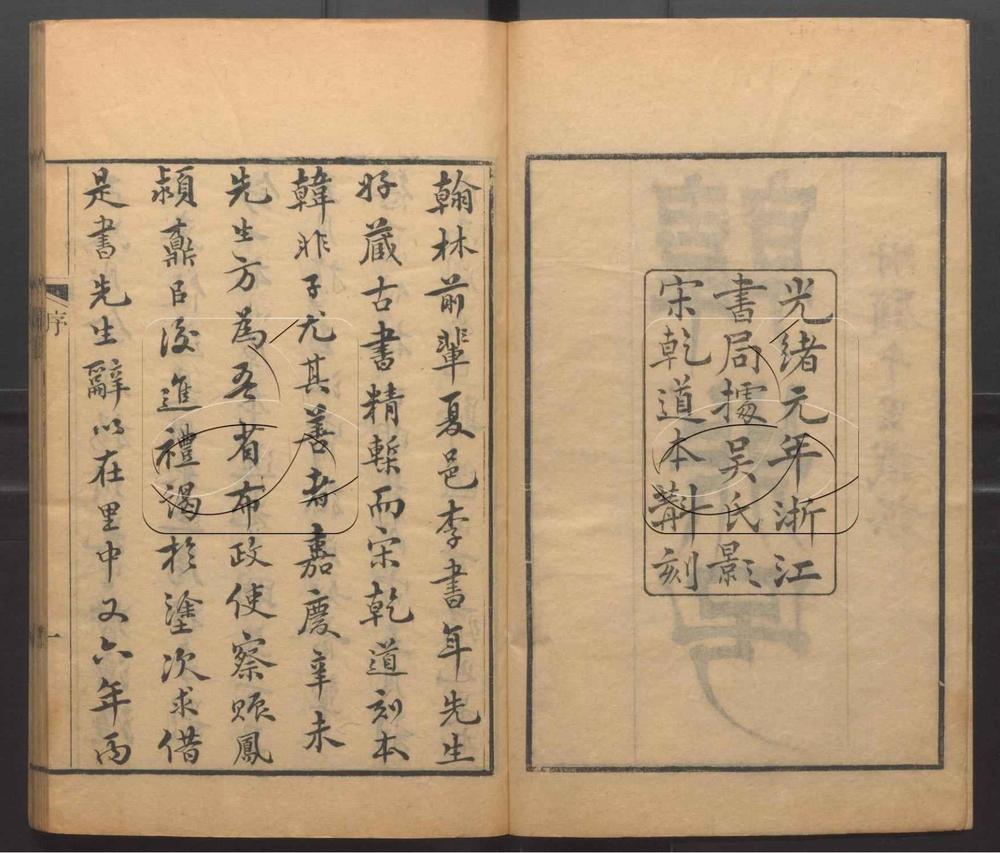 光緒元年浙江
書局據吳氏影
宋乾道本斠刻
翰林前輩夏邑李書年先生
好藏古書精槧而宋乾道刻本
韓非子尤其善者嘉慶辛未
先生方為吾省布政使察賑鳳
潁鼒以後進禮謁於塗次求借
是書先生辭以在里中又六年丙
序
一